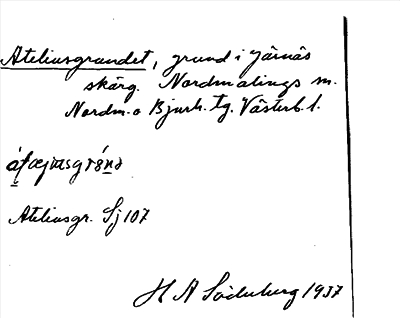 Ateliusgrundet, grund i Järnäs
skärg. Nordmalings sn.
Nordm. o Bjurh. tg. Västerb. l.
Ateliusgr. Sj 107
H A Söderberg 1937